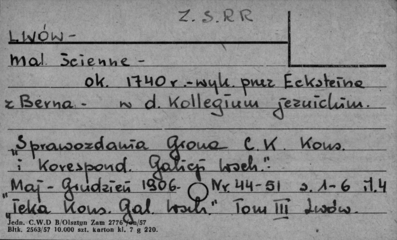 Z.S.RR
LWÓW-
mal ścienne -
ok. 1740 r. - wyk. przez Ecksteina
z Berna - w d. Kollegium jezuickim.
"Sprawozdania Grona C.K. Kons.
i Korespond. Galicji wsch."-
Maj - Grudzień 1906- Nr 44-51 s. 1-6 il. 4
"Teka Kons. Gal. wsch." Tom III Lwów.
Jedn. C.W.D B/Olsztyn Zam 2776 /57
Bltk. 2563/57 10.000 szt. karton kl. 7 g 220.